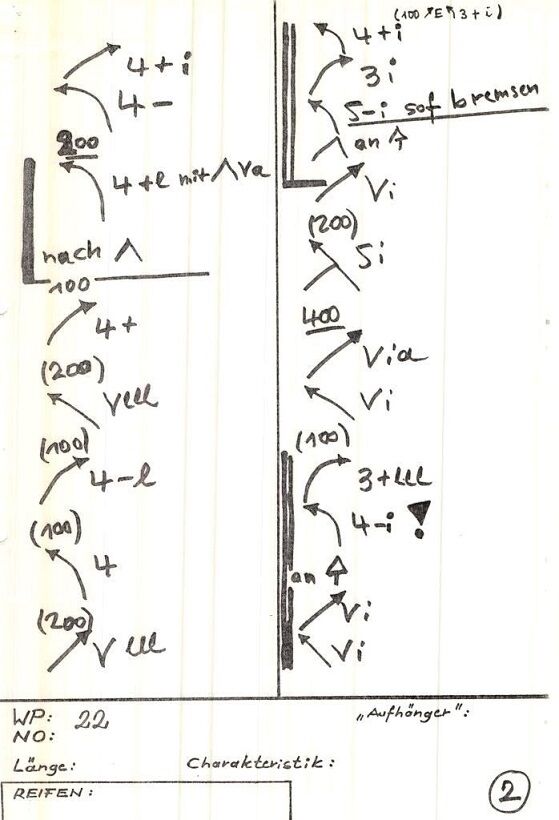 4+i
4-
200
4+l mit Λ Va
nach Λ
100
4+
(200)
Vlll
(100)
4-l
(100)
4
(200)
Vlll
(100 E 3+i)
4+i
3i
5-i sof bremsen
an
Vi
(200)
5i
400
Via
Vi
(100)
3+lll
4-i !
an
Vi
Vi
WP: 22
NO:
„Aufhänger":
Länge:
Charakteristik:
REIFEN:
2